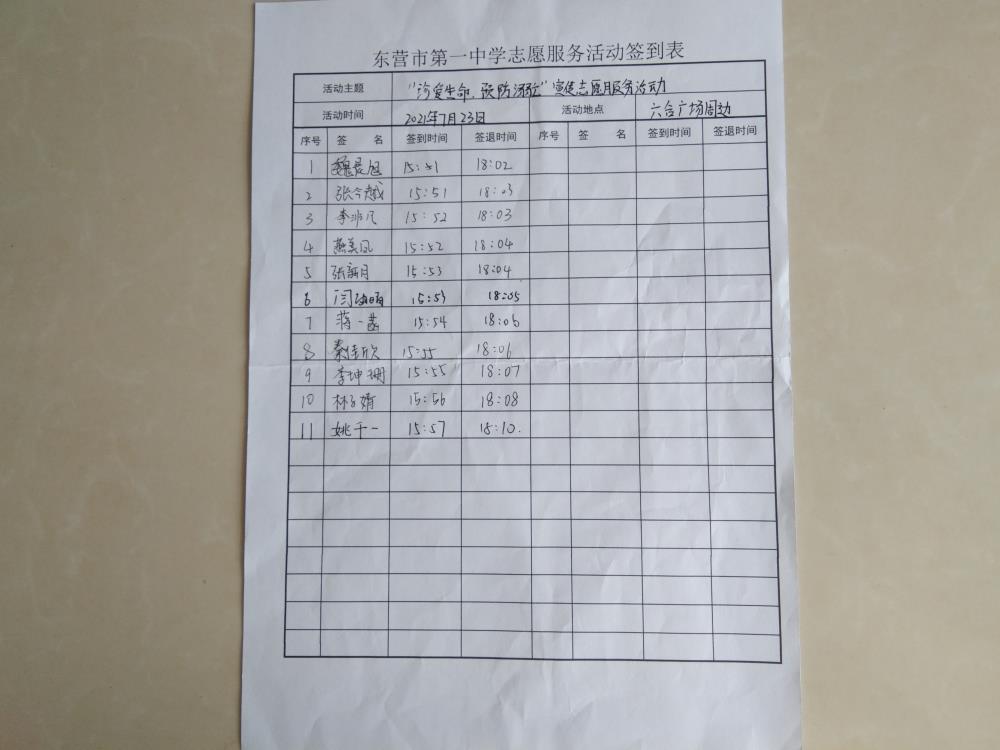 东营市第一中学志愿服务活动签到表
活动主题 "珍爱生命、预防溺水"宣传志愿服务活动
活动时间 2021年7月23日 活动地点 六合广场周边
序号 签 名 签到时间 签退时间 序号 签 名 签到时间 签退时间
1 魏晨旭 15:51 18:02
2 张今越 15:51 18:03
3 李沛凡 15:52 18:03
4 燕美凤 15:52 18:04
5 张新月 15:53 18:04
6 15:53 18:05
7 蒋一菡 15:54 18:06
8 秦佳欣 15:55 18:06
9 李坤珊 15:55 18:07
10 林子婧 15:56 18:08
11 姚千一 15:57 18:10.